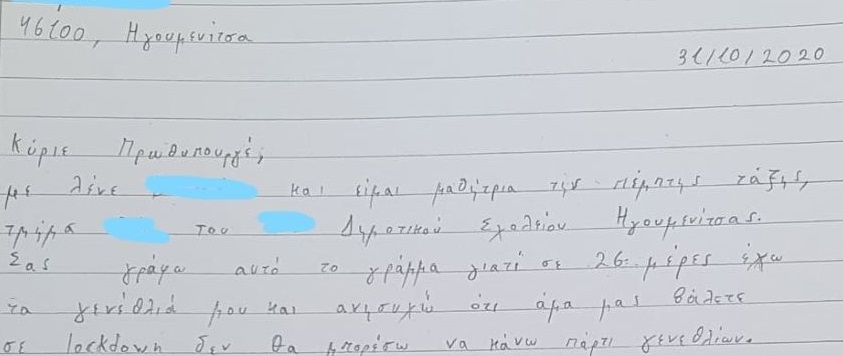 46100, Ηγουμενίτσα
31/10/2020
Κύριε Πρωθυπουργέ,
με λένε και είμαι μαθήτρια της πέμπτης τάξης,
τμήμα του Δημοτικού Σχολείου Ηγουμενίτσας.
Σας γράφω αυτό το γράμμα γιατί σε 26 μέρες έχω
τα γενέθλιά μου και ανησυχώ ότι άμα μας βάλετε
σε lockdown δεν θα μπορέσω να κάνω πάρτι γενεθλίων.